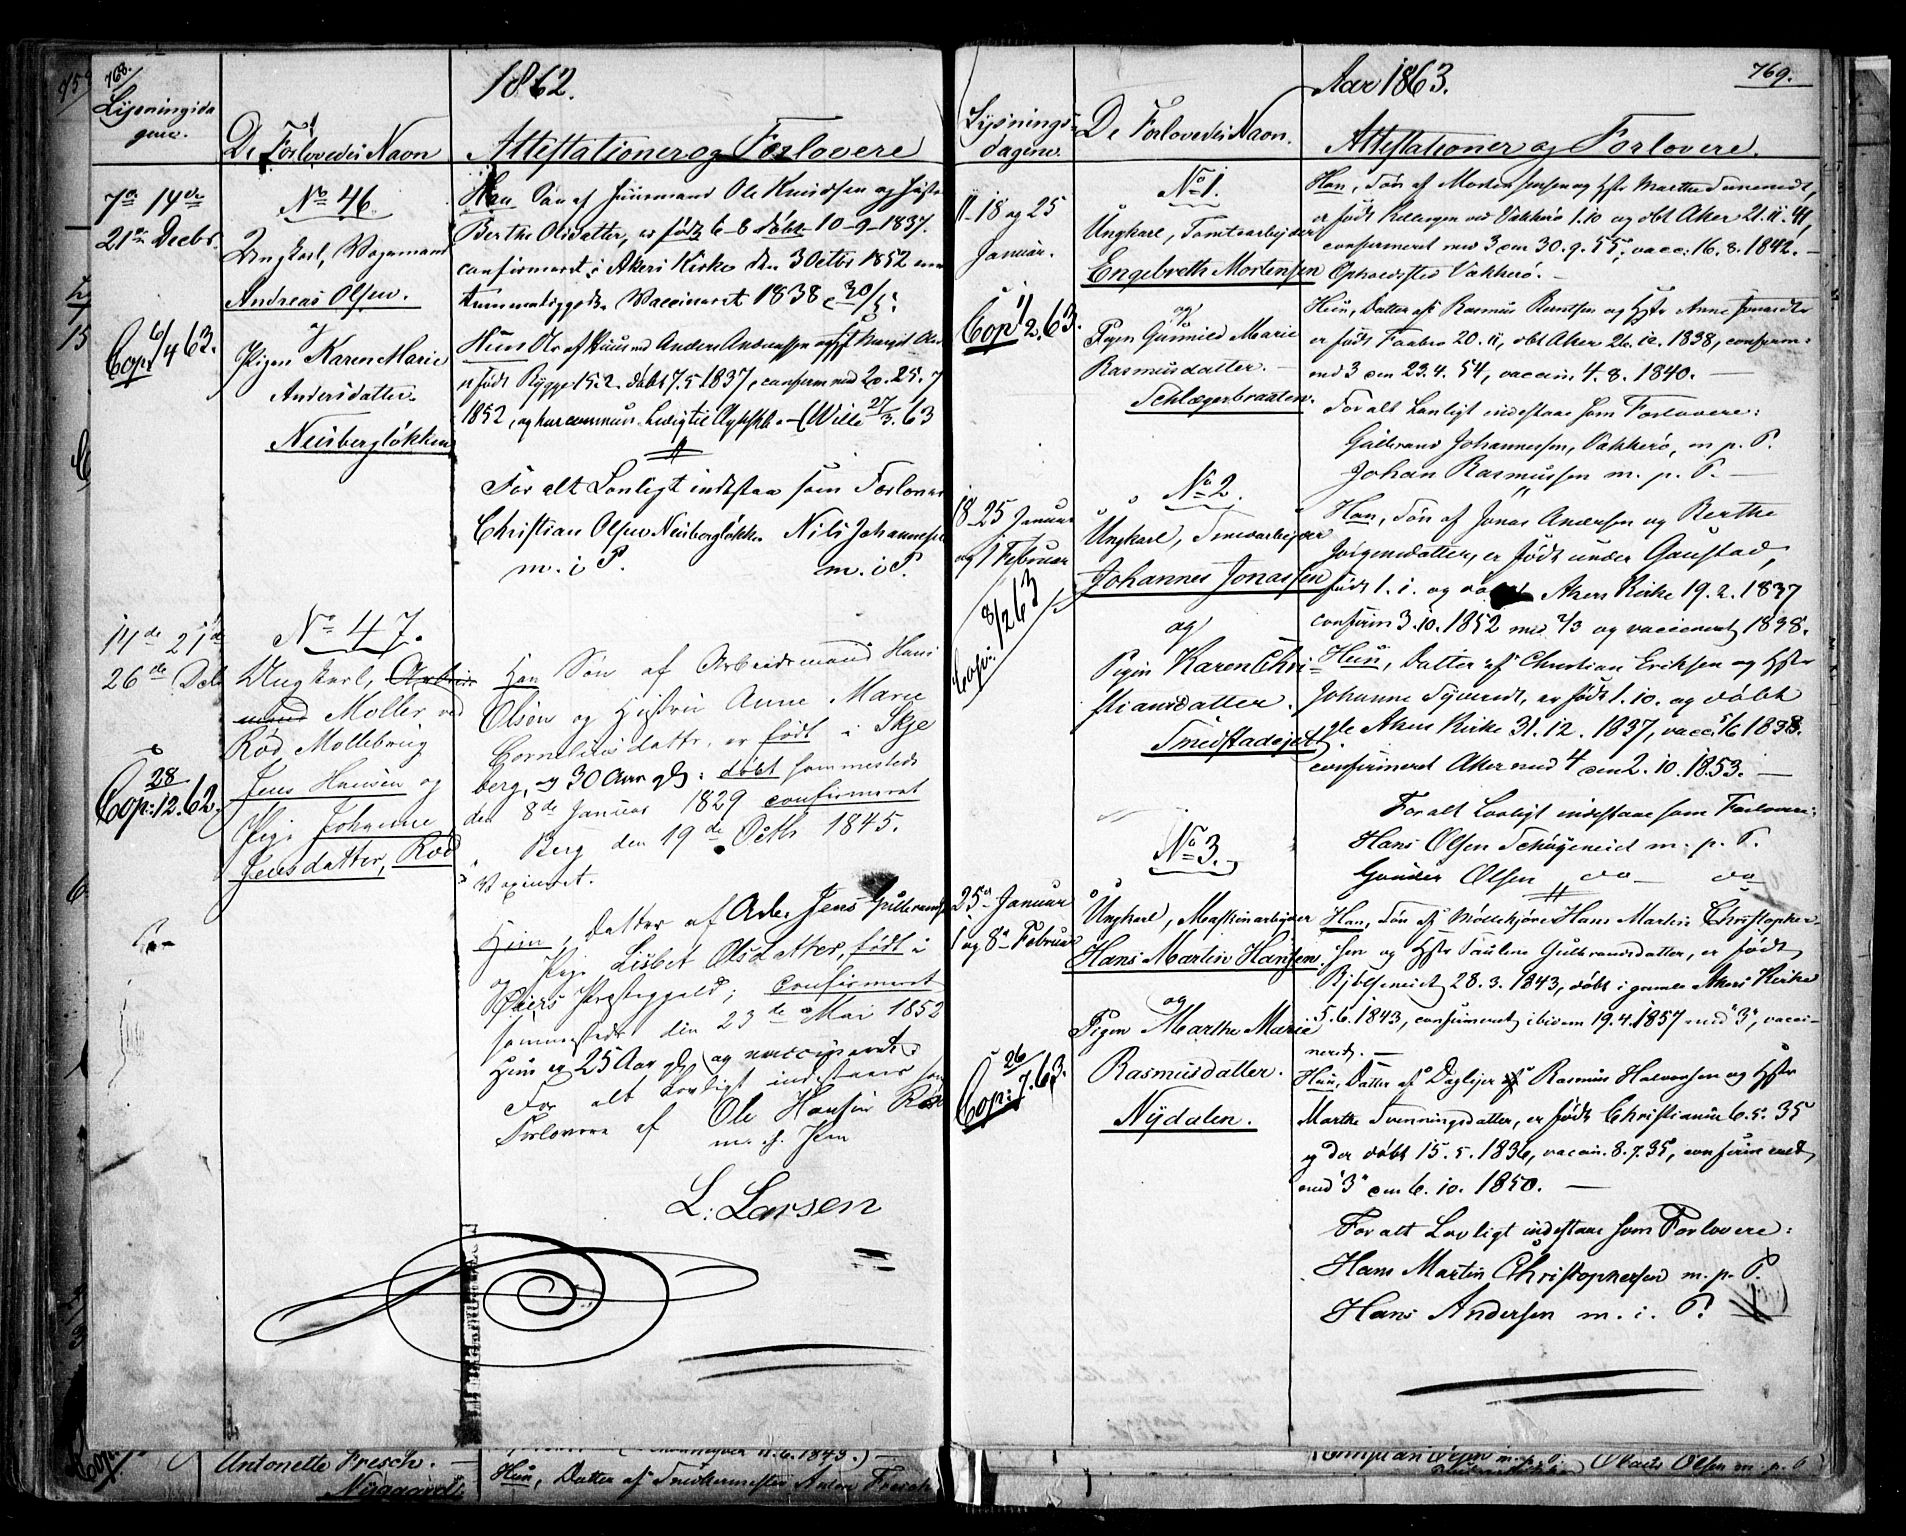 768.
1862.
Lysningsda
gene.
De Forlovedes Navn
Attestationer og Forlovere
7de 14de
21de Decbr.
No 46.
Ungkarl, Vognmand
Andreas Olsen.
Cop: 6/4 63.
Pigen Karen Marie
Andersdatter.
Neubergløkken
Han, Søn af Huusmand Ole Knudsen og Hustru
Berthe Olsdatter, er født 6-8 døbt 10-9-1837.
confirmeret i Akers Kirke den 3 Octbr 1852
Vaccineret 1838 30/5
Anders Andersen
født Rygge 15.2. døbt 7.5 1837, confirm med 25.7
1852, (Wille 27/3. 63
For alt Lovligt indestaa som Forlovere
Christian Olsen Neubergløkken Nils Johannesen
m. i P. m. i P.
14de 21de
26de Decbr
No 47.
Ungkarl, Arbeids
mand Møller ved
Rød Møllebrug
Jens Hansen og
Pige Johanne
Jensdatter, Rød
Cop: 28/12. 62.
Han Søn af Arbeidsmand Hans
Olsen og Hustru Anne Marie
Cornelius datter, er født i Skje
berg, og 30 Aar gl: døbt sammesteds
den 8de Januar 1829 confirmeret
i Berg den 19de Octb 1845.
Vaxineret.
Hun, Datter af Arb. Jens
og Pige Lisbet Olsdatter, født i
Præstegjeld; confirmeret
sammesteds den 23de Mai 1852
Hun er 25 Aar gl, og vaccineret.
For alt Lovligt indestaaer som
Forlovere af Ole Hansen Rød
m. f. Pen
L: Larsen
769.
Aar 1863.
Lysnings-
dagene.
De Forlovedes Navn.
Attestationer og Forlovere.
11-18 og 25
Januar.
No 1.
Ungkarl, Tomtearbejder
Engebreth Mortensen
og
Cop 1/2. 63.
Pigen Gunnild Marie
Rasmusdatter.
Schlægerbraaten.
Han, Søn af Morten Jensen og Hst Marthe
er født ved Vækkerø 1.10 og dbt Aker 21.11.41,
confirmeret med 3 den 30.9.55, vacc: 16.8.1842.
Opholdsted Vækkerø.
Hun, Datter af Rasmus Knutsen og Hst Anne
er født Foubro 20.11, dbt Aker 26.12.1838, confirm.
med 3 den 23.4.54, vaccin. 4.8.1840.
For alt Lovligt indestaae som Forlovere:
Gulbrand Johannessen, Vækkerø, m. p. P.
Johan Rasmussen m. p. P.
18-25 Januar
og 1 Februar
No 2.
Ungkarl,
Johannes Jonassen
og
Pigen Karen Chri-
stiansdatter.
Smedstadejet
Cop: 8/2 63
Han, Søn af Jonas Andersen og Berthe
Jørgensdatter, er født under Gaustad,
født 1.1. og Akers Kirke 19.2.1837
confirm 3.10.1852 med 2/3 og vaccineret 1838.
Hun, Datter af Christian Eriksen og Hst
Johanne Syversdt, er født 1.10. og døbt
Akers Kirke 31.12.1837, vacc. 5/6 1838.
confirmeret Aker med 4 den 2.10.1853.
For alt Lovligt indestaae som Forlovere:
Hans Olsen m. p. P.
Gunder Olsen do do
25de Januar
1 og 8de Februar
No 3.
Ungkarl, Maskinarbejder
Hans Martin Hansen
og
Pigen Marthe Marie
Rasmusdatter.
Nydalen.
Cop: 26/7. 63.
Han, Søn af Møllekjører Hans Martin Christopher-
sen og Hst Pauline Gulbrandsdatter, er født
28.3.1843, døbt i gamle Akers Kirke
5.6.1843, confirmeret ibidem 19.4.1857 med "3", vacci-
neret.
Hun, Datter af Daglejer af Rasmus Halvorsen og Hst
Marthe Svenningsdatter, er født Christiania 6.5.35
og der døbt 15.5.1836, vaccin. 8.7.35, confirmeret
med "3" den 6.10.1850.
For alt Lovligt indestaae som Forlovere:
Hans Martin Christophersen m. p. P.
Hans Andersen m. i. P.
Antonette Fresch.
Nygaard
11.6.1843.)
Hun, Datter af Snedkermester Anton Fresch
Christian Olsen m. p. P.
Olsen m. p. P